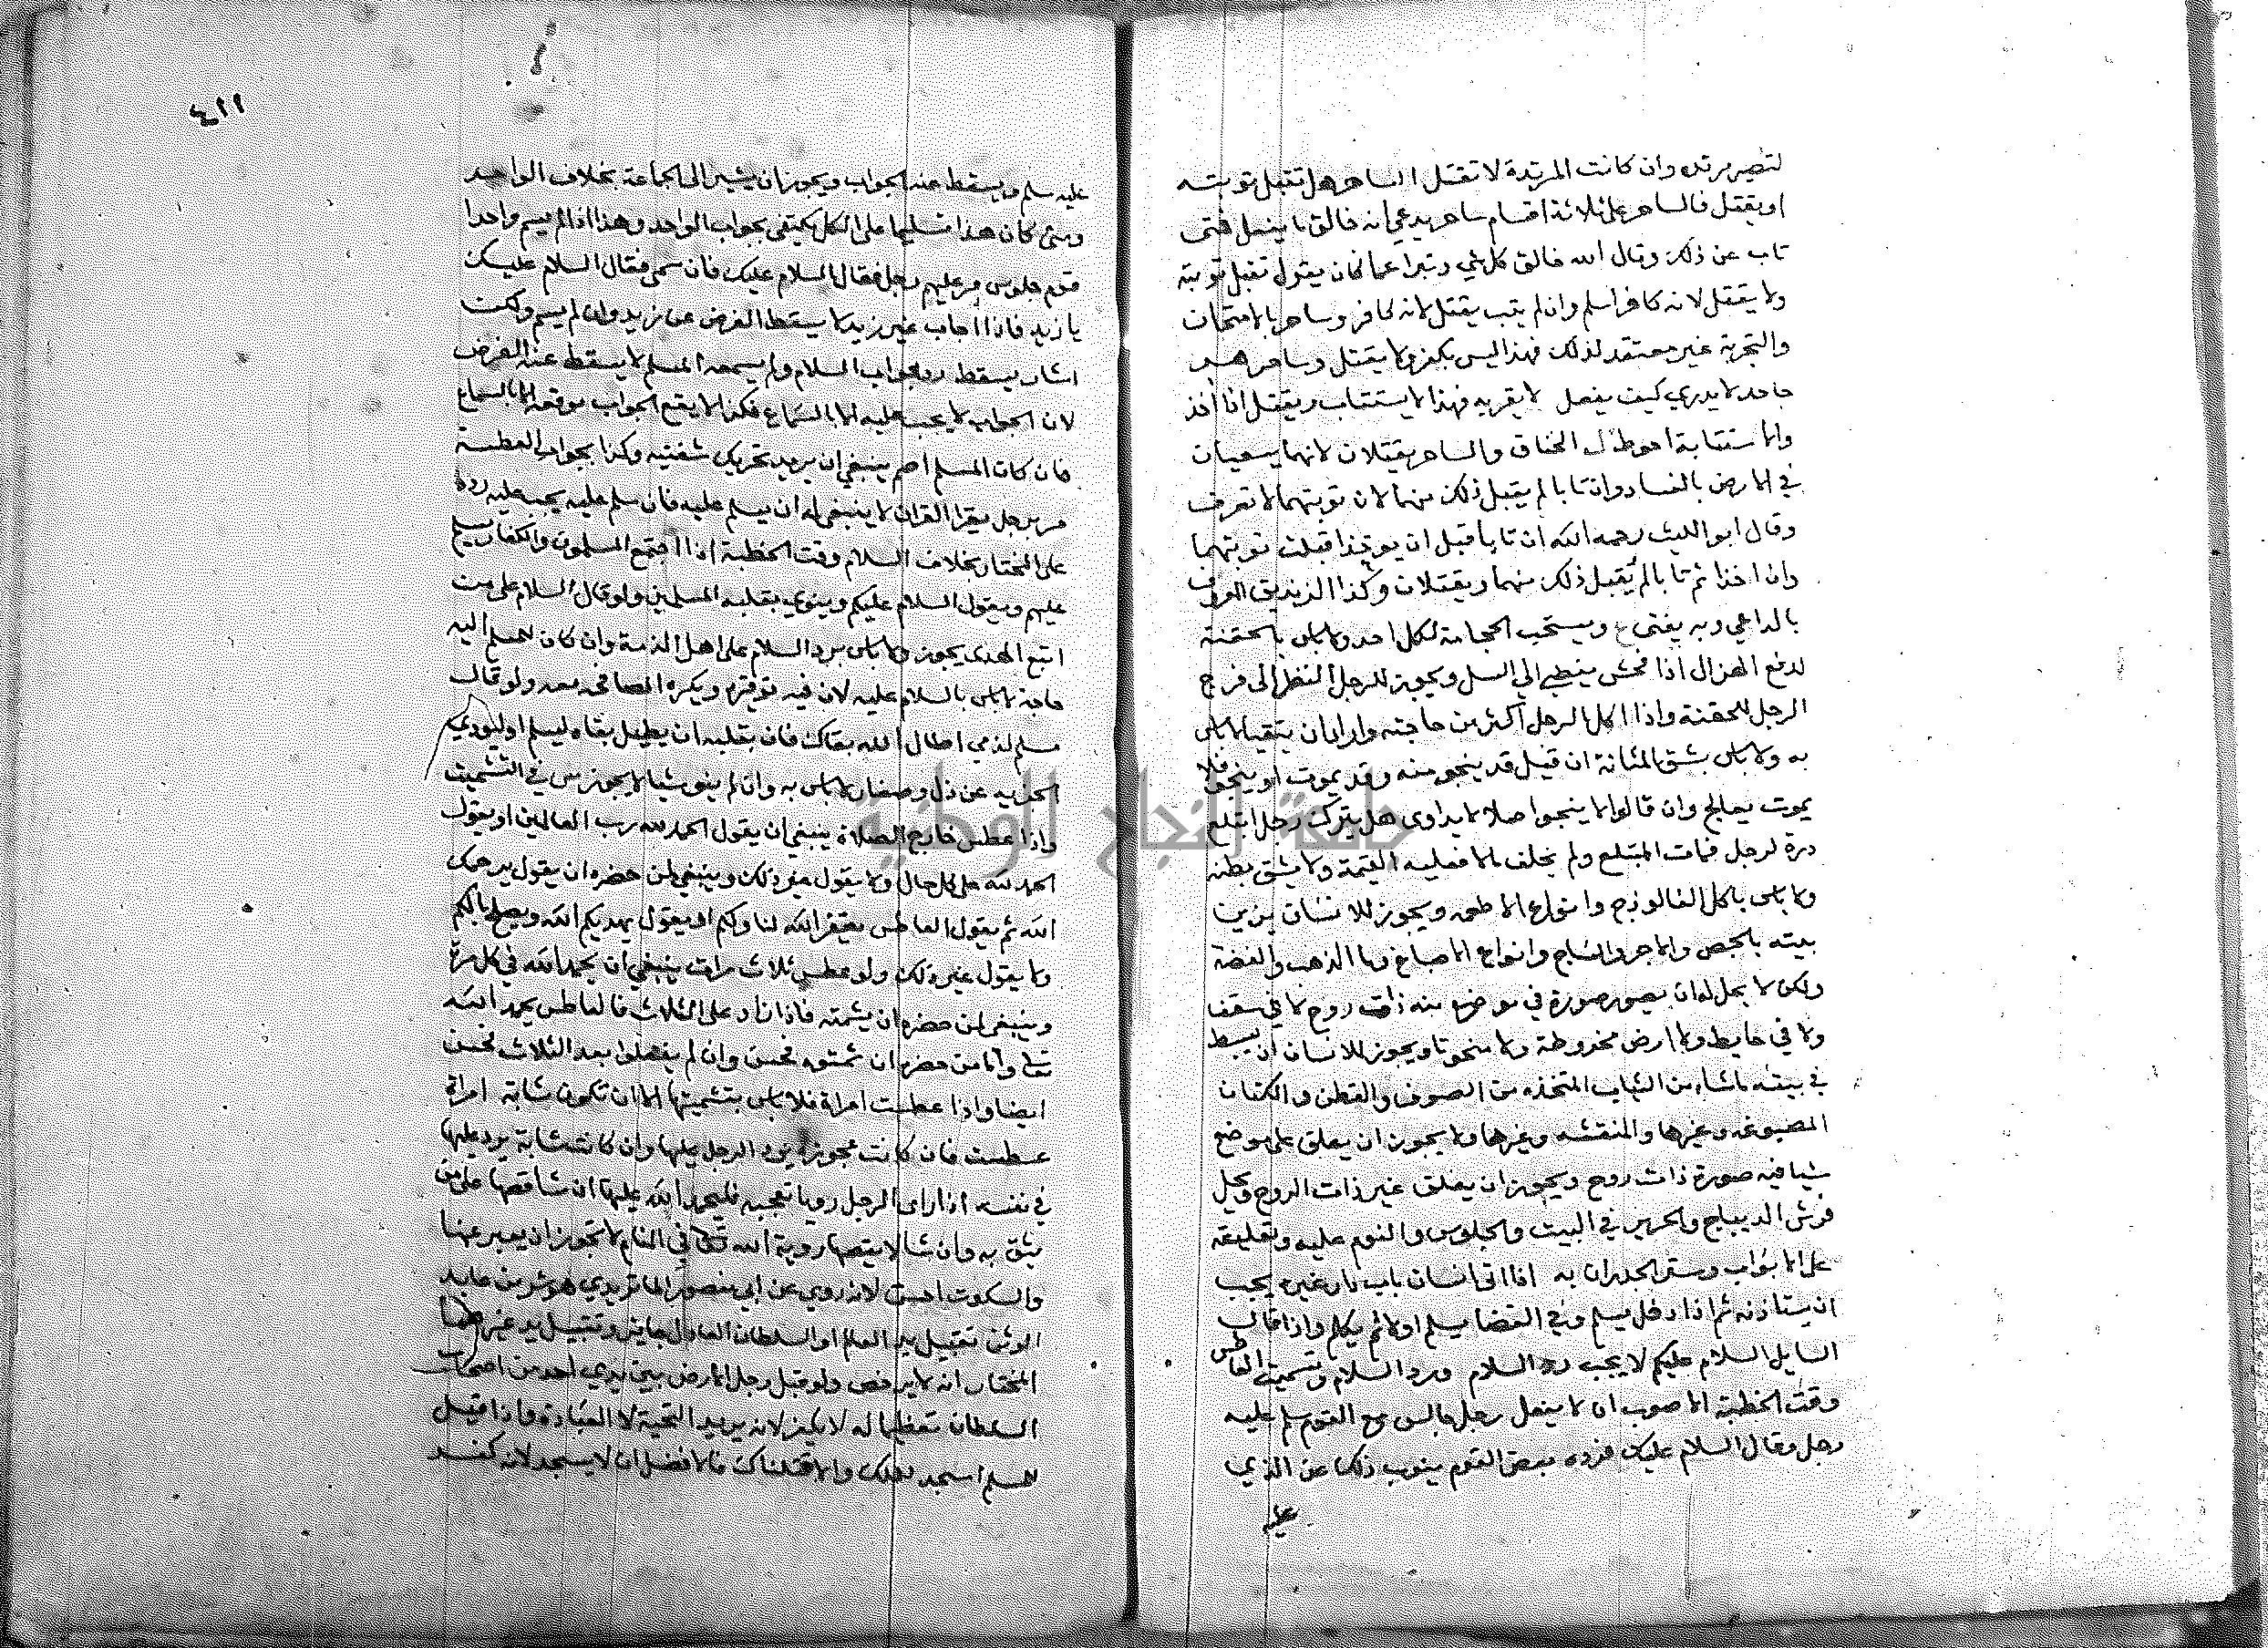 لتصير مرتدة وان كانت المرتدة لا تقتل الساحر هل تقبل توبته
او يقتل فالساحر على ثلاثة اقسام ساحر يدعي انه خالق ما يفعل فمتى
تاب عن ذلك وقال الله خالق كل شي وتبرا عما كان يقول تقبل توبته
ولا يقتل لانه كافر اسلم وان لم يتب يقتل لانه كافر وساحر بالامتحان
والتجربة غير معتقد لذلك فهذا ليس بكفر ولا يقتل وساحر هو
جاحد لا يدري كيف يفعل لا يقر به فهذا لا يستتاب ويقتل اذا اخذ
والاستتابة احوط الخناق والساحر يقتلان لانهما يسعيان
في الارض بالفساد وان تابا لم يقبل ذلك منهما لان توبتهما لا تعرف
وقال ابو الليث رحمه الله ان تابا قبل ان يوخذا قبلت توبتهما
وان اخذا ثم تابا لم يقبل ذلك منهما ويقتلان وكذا الزنديق المعروف
بالداعي وبه يفتى ويستحب الحجامة لكل احد ولا باس بالحقنة
لدفع الهزال اذا فحش يفضي الى السل ويجوز للرجل النظر الى فرج
الرجل للحقنة واذا اكل الرجل اكثر من حاجته واراد ان يتقيا لا باس
به ولا باس بشق المثانة ان قيل قد ينجو منه وقد يموت او ينجو فلا
يموت يعالج وان قالوا لا ينجوا اصلا لا يداوى هل يترك رجل ابتلع
درة لرجل فمات المبتلع ولم يخلف مالا فعليه القيمة ولا يشق بطنه
ولا باس باكل الفالوذج وانواع الاطعمه ويجوز للانسان يزين
بيته بالجص والاجر والساج وانواع الاصباغ وما الذهب والفضة
ولكن لا يحل له ان يصور صورة في موضع منه ذات روح لا في سقف
ولا في حايط ولا ارض مخروطة ولا منحوتا ويجوز للانسان ان يبسط
في بيته ماشاء من الثياب المتخذه من الصوف والقطن والكتان
المصبوغه وغيرها والمنقشه وغيرها ولا يجوز ان يعلق على موضع
شيا فيه صورة ذات روح ويجوز ان يعلق غير ذات الروح ويحل
فرش الديباج والحرير في البيت والجلوس والنوم عليه وتعليقه
على الابواب وستر الجدران به اذا اتى انسان باب دار غيره يجب
ان يستاذنه ثم اذا دخل يسلم وفي القضا يسلم اولا ثم يتكلم واذا قال
السايل السلام عليكم لا يجب رد السلام ورد السلام وتشميت العاطس
وقت الخطبة الاصوب ان لا يفعل رجل جالس مع القوم سلم عليه
رجل وقال السلام عليك فرده بعض القوم ينوب ذلك عن الذي
عليه
٤١١
عليه سلم ويسقط عنه الجواب ويجوز ان يشير الى الجماعة بخلاف الواحد
ومتى كان هذا تسليما على الكل يكتفى بجواب الواحد وهذا اذا لم يسم واحدا
قوم جلوس مر عليهم رجل فقال السلام عليك فان سمى فقال السلام عليك
يا زيد فاذا اجاب غير زيد لا يسقط الفرض عن زيد وان لم يسم ولكن
اشار يسقط رد جواب السلام ولم يسمعه المسلم لا يسقط عنه الفرض
لان الجواب لا يجب عليه الا بالسماع فكذا لا يقع الجواب موقعه الا بالسماع
فان كان المسلم اصم ينبغي ان يريه تحريك شفتيه وكذا جواب العطسة
مر برجل يقرا القران لا ينبغي له ان يسلم عليه فان سلم عليه يجب عليه رده
على المختار بخلاف السلام وقت الخطبة اذا اجتمع المسلمون والكفار يسلم
عليهم ويقول السلام عليكم وينوي بقلبه المسلمين ولو قال السلام على من
اتبع الهدى يجوز ولا باس برد السلام على اهل الذمة وان كان للمسلم اليه
حاجة لا باس بالسلام عليه لان فيه توقيره ويكره المصافحه معه ولو قال
مسلم لذمي اطال الله بقاك فان بقلبه ان يطيل بقاه ليسلم او ليودي
الجزيه عن ذل وصغار لا باس به وان لم ينو شيا لا يجوز س في التشميت
واذا عطس خارج الصلاة ينبغي ان يقول الحمد لله رب العالمين او يقول
الحمد لله على كل حال ولا يقول غير ذلك وينبغي لمن حضره ان يقول يرحمك
الله ثم يقول العاطس يغفر الله لنا ولكم او يقول يهديكم الله ويصلح بالكم
ولا يقول غير ذلك ولو عطس ثلاث مرات ينبغي ان يحمد الله في كل مرة
وينبغي لمن حضره ان يشمته فاذا زاد على الثلاث فالعاطس يحمد الله
تعالى واما من حضره ان شمتوه فحسن وان لم يفعلوا بعد الثلاث فحسن
ايضا واذا عطست امراة فلا باس بتشميتها الا ان تكون شابة امراة
عطست فان كانت عجوزة يرد الرجل عليها وان كانت شابة يرد عليها
في نفسه اذا راى الرجل رويا تعجبه فليحمد الله عليها ان شا قصها على من
يثق به وان شا لا يقصها روية الله تعالى في المنام لا تجوز ان يعبر عنها
والسكوت احسن لانه روي عن ابي منصور الماتريدي هو شر من عابد
الوثن تقبيل يد العالم او السلطان العادل جايز وتقبيل يد غيرهما
المختار انه لا يرخص ولو قبل رجل الارض بين يدي احد من اصحاب
السلطان تعظيما له لا يكفر لانه يريد التحية لا العبادة واذا قيل
لمسلم اسجد لملك والا قتلناك فالافضل ان لا يسجد لانه كفر